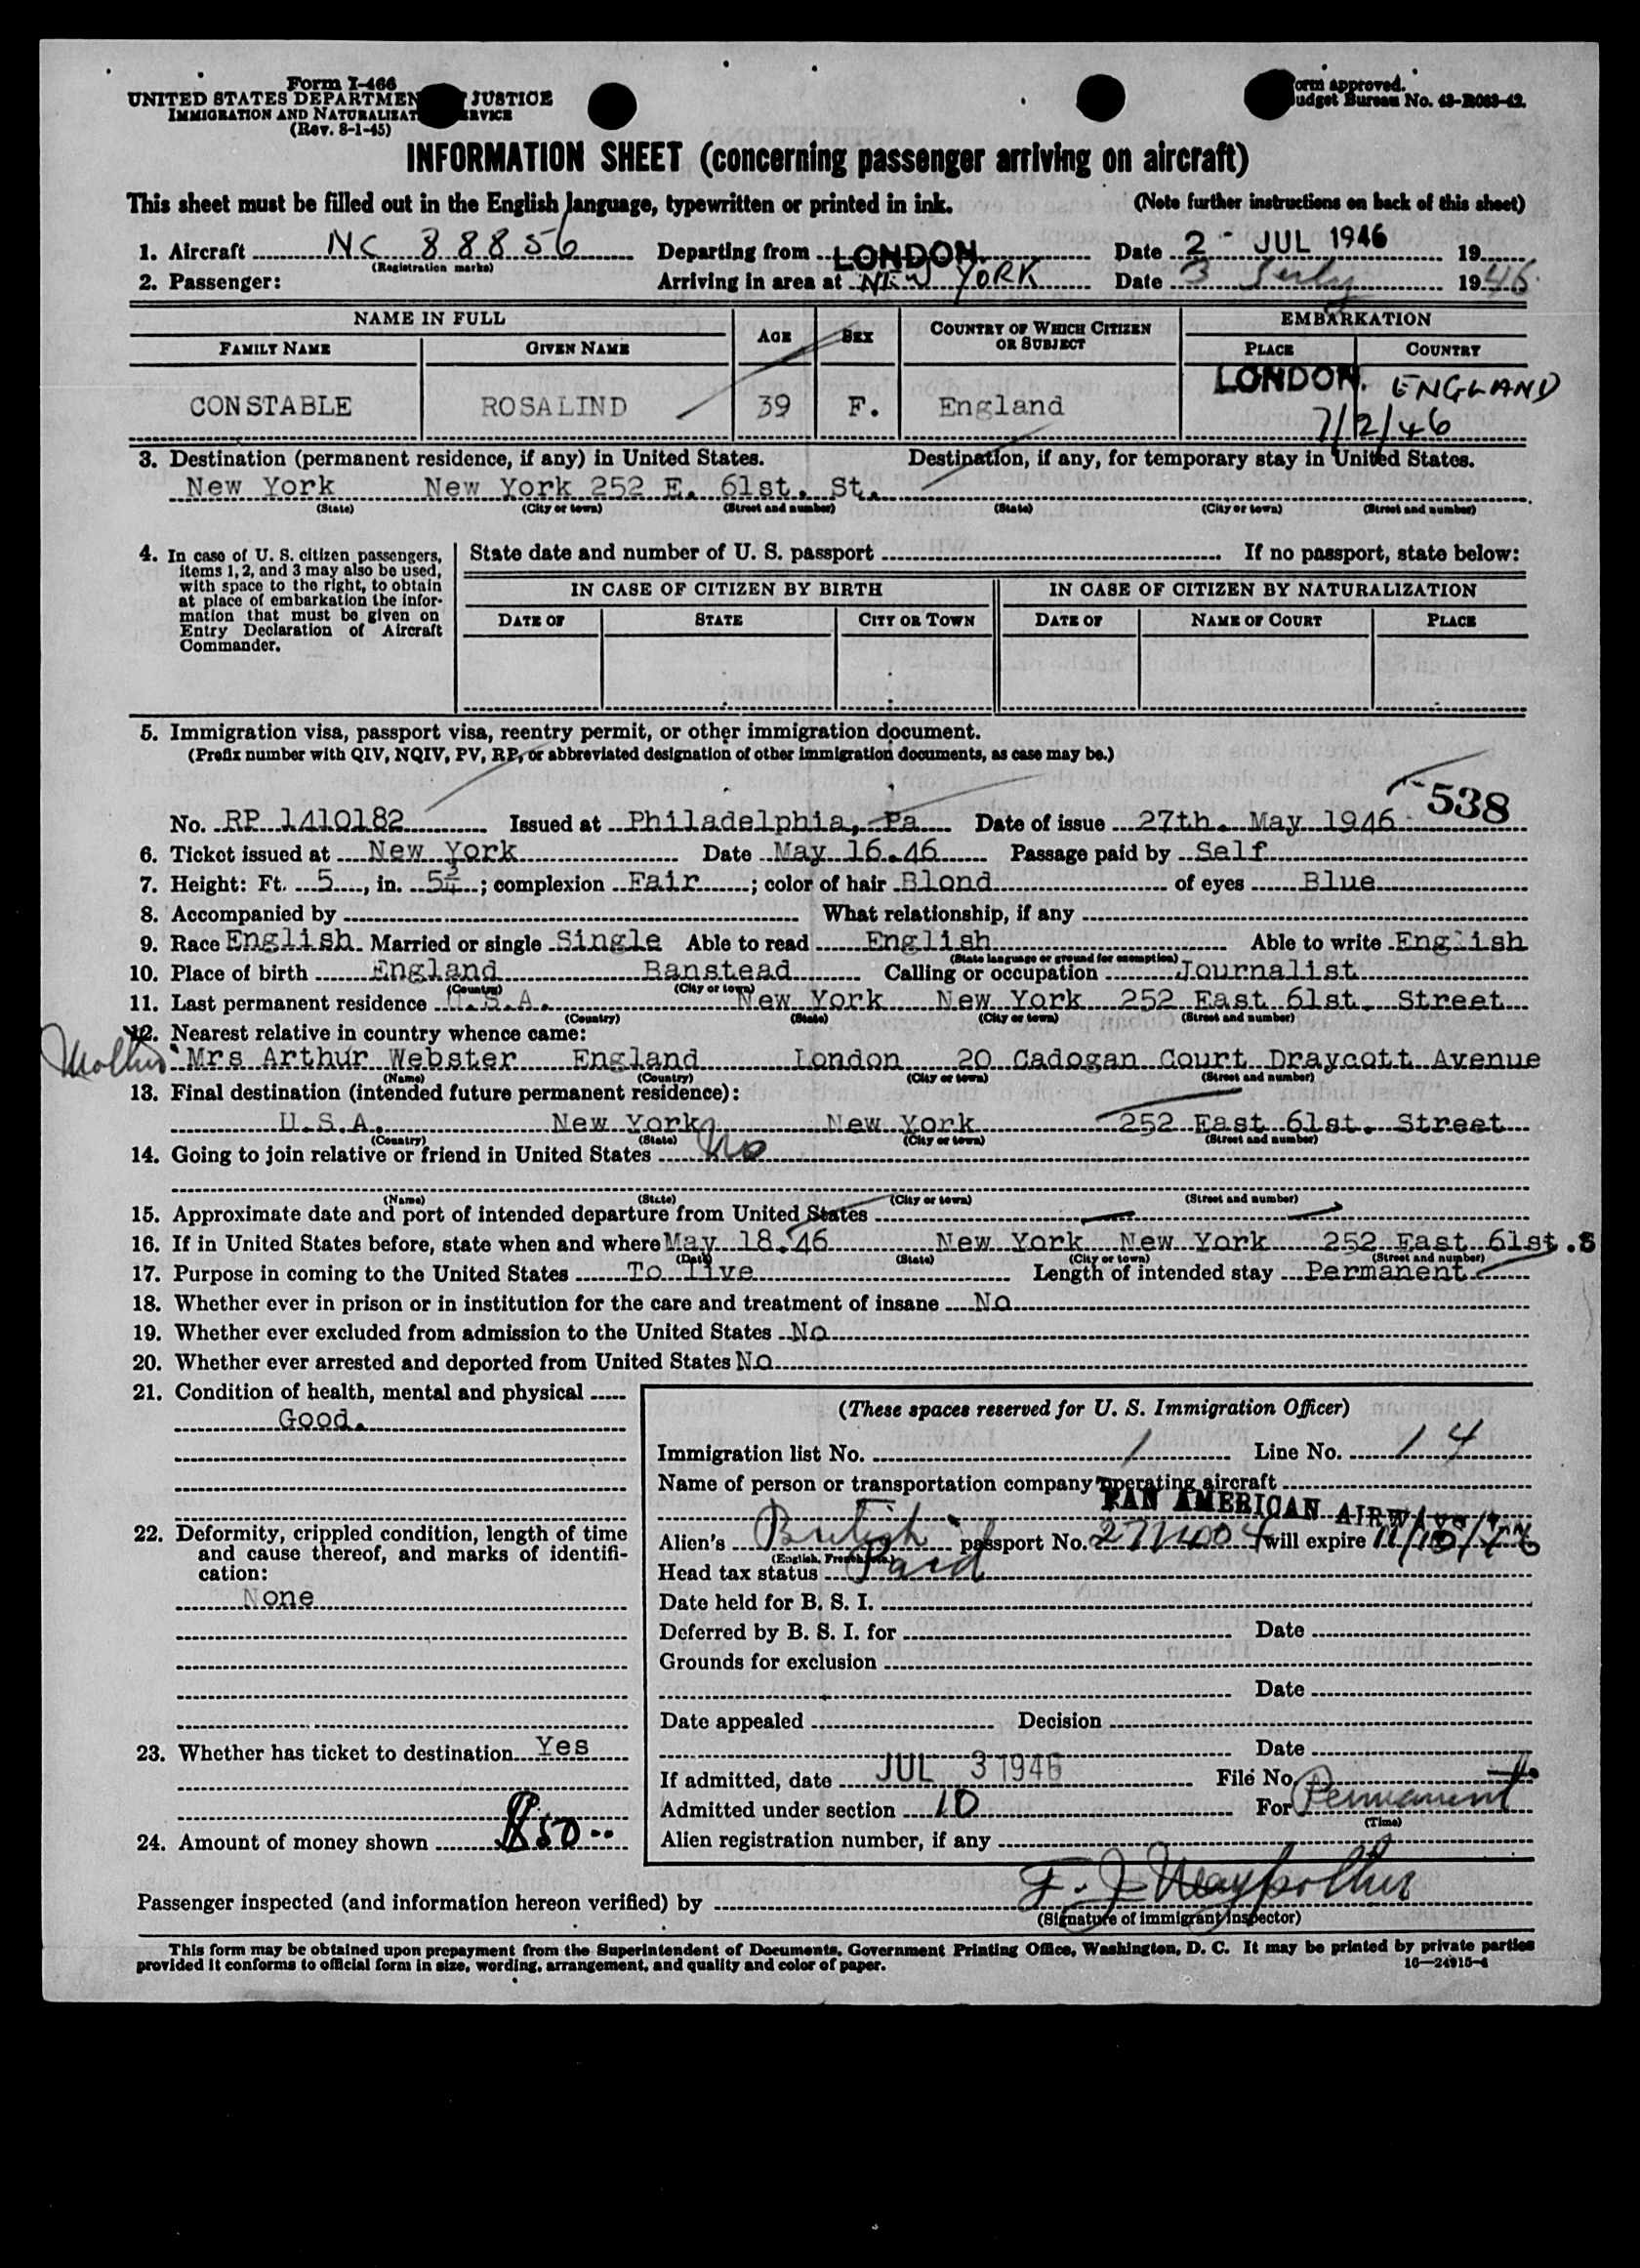 Form I-466
UNITED STATES DEPARTMEN JUSTICE
IMMIGRATION AND NATURALIZAT ERVICE
(Rev. 8-1-45)
orm approved.
udget Bureau No. 43-R063-42.
INFORMATION SHEET (concerning passenger arriving on aircraft)
This sheet must be filled out in the English language, typewritten or printed in ink. (Note further instructions on back of this sheet)
1. Aircraft NC 88856 Departing from LONDON. Date 2 - JUL 1946 19
(Registration marks)
2. Passenger: Arriving in area at NEW YORK Date 3 July 1946.
NAME IN FULL AGE SEX COUNTRY OF WHICH CITIZEN OR SUBJECT EMBARKATION
FAMILY NAME GIVEN NAME PLACE COUNTRY
CONSTABLE ROSALIND 39 F. England LONDON. ENGLAND
7/2/46
3. Destination (permanent residence, if any) in United States. Destination, if any, for temporary stay in United States.
New York New York 252 E. 61st. St.
(State) (City or town) (Street and number) (State) (City or town) (Street and number)
4. In case of U. S. citizen passengers, items 1, 2, and 3 may also be used, with space to the right, to obtain at place of embarkation the information that must be given on Entry Declaration of Aircraft Commander.
State date and number of U. S. passport If no passport, state below:
IN CASE OF CITIZEN BY BIRTH IN CASE OF CITIZEN BY NATURALIZATION
DATE OF STATE CITY OR TOWN DATE OF NAME OF COURT PLACE
5. Immigration visa, passport visa, reentry permit, or other immigration document.
(Prefix number with QIV, NQIV, PV, RP, or abbreviated designation of other immigration documents, as case may be.)
538
No. RP 1410182 Issued at Philadelphia, Pa Date of issue 27th. May 1946
6. Ticket issued at New York Date May 16.46 Passage paid by Self
7. Height: Ft. 5, in. 5¾; complexion Fair; color of hair Blond of eyes Blue
8. Accompanied by What relationship, if any
9. Race English Married or single Single Able to read English Able to write English
(State language or ground for exemption)
10. Place of birth England Banstead Calling or occupation Journalist
(Country) (City or town)
11. Last permanent residence U.S.A. New York New York 252 East 61st. Street
(Country) (State) (City or town) (Street and number)
12. Nearest relative in country whence came:
Mother Mrs Arthur Webster England London 20 Cadogan Court Draycott Avenue
(Name) (Country) (City or town) (Street and number)
13. Final destination (intended future permanent residence):
U.S.A. New York New York 252 East 61st. Street
(Country) (State) (City or town) (Street and number)
14. Going to join relative or friend in United States No
(Name) (State) (City or town) (Street and number)
15. Approximate date and port of intended departure from United States
16. If in United States before, state when and where May 18.46 New York New York 252 East 61st.S
(Date) (State) (City or town) (Street and number)
17. Purpose in coming to the United States To live Length of intended stay Permanent
18. Whether ever in prison or in institution for the care and treatment of insane No
19. Whether ever excluded from admission to the United States No
20. Whether ever arrested and deported from United States No
21. Condition of health, mental and physical
Good.
22. Deformity, crippled condition, length of time and cause thereof, and marks of identification:
None
23. Whether has ticket to destination Yes
24. Amount of money shown $50--
(These spaces reserved for U. S. Immigration Officer)
Immigration list No. 1 Line No. 14
Name of person or transportation company operating aircraft
PAN AMERICAN AIRWAYS
Alien's British passport No. will expire
(English, French, etc.)
Head tax status Paid
Date held for B. S. I.
Deferred by B. S. I. for Date
Grounds for exclusion
Date
Date appealed Decision
Date
If admitted, date JUL 3 1946 File No.
Admitted under section 10 For Permanent
(Time)
Alien registration number, if any
Passenger inspected (and information hereon verified) by
(Signature of immigrant inspector)
This form may be obtained upon prepayment from the Superintendent of Documents, Government Printing Office, Washington, D. C. It may be printed by private parties
provided it conforms to official form in size, wording, arrangement, and quality and color of paper. 16—24915-4